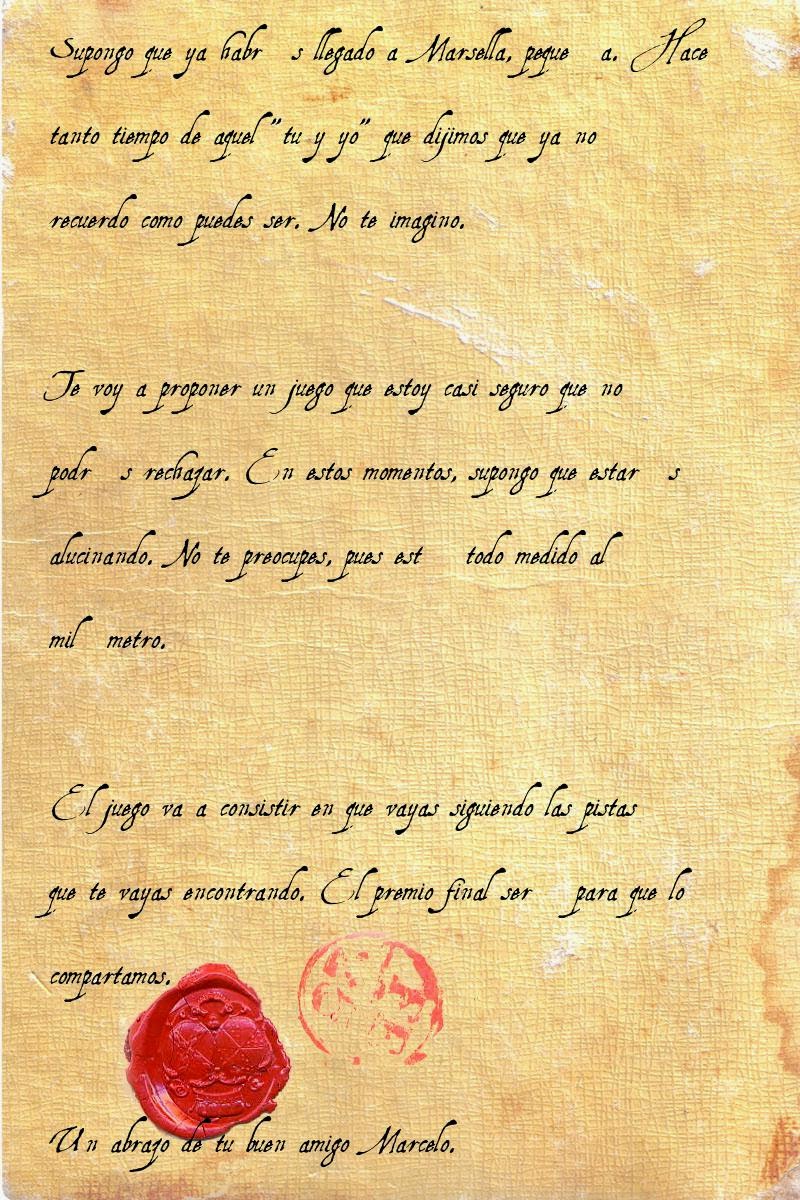 Supongo que ya habr s llegado a Marsella, peque a. Hace
tanto tiempo de aquel "tu y yo" que dijimos que ya no
recuerdo como puedes ser. No te imagino.
Te voy a proponer un juego que estoy casi seguro que no
podr s rechazar. En estos momentos, supongo que estar s
alucinando. No te preocupes, pues est todo medido al
mil metro.
El juego va a consistir en que vayas siguiendo las pistas
que te vayas encontrando. El premio final ser para que lo
compartamos.
Un abrazo de tu buen amigo Marcelo.